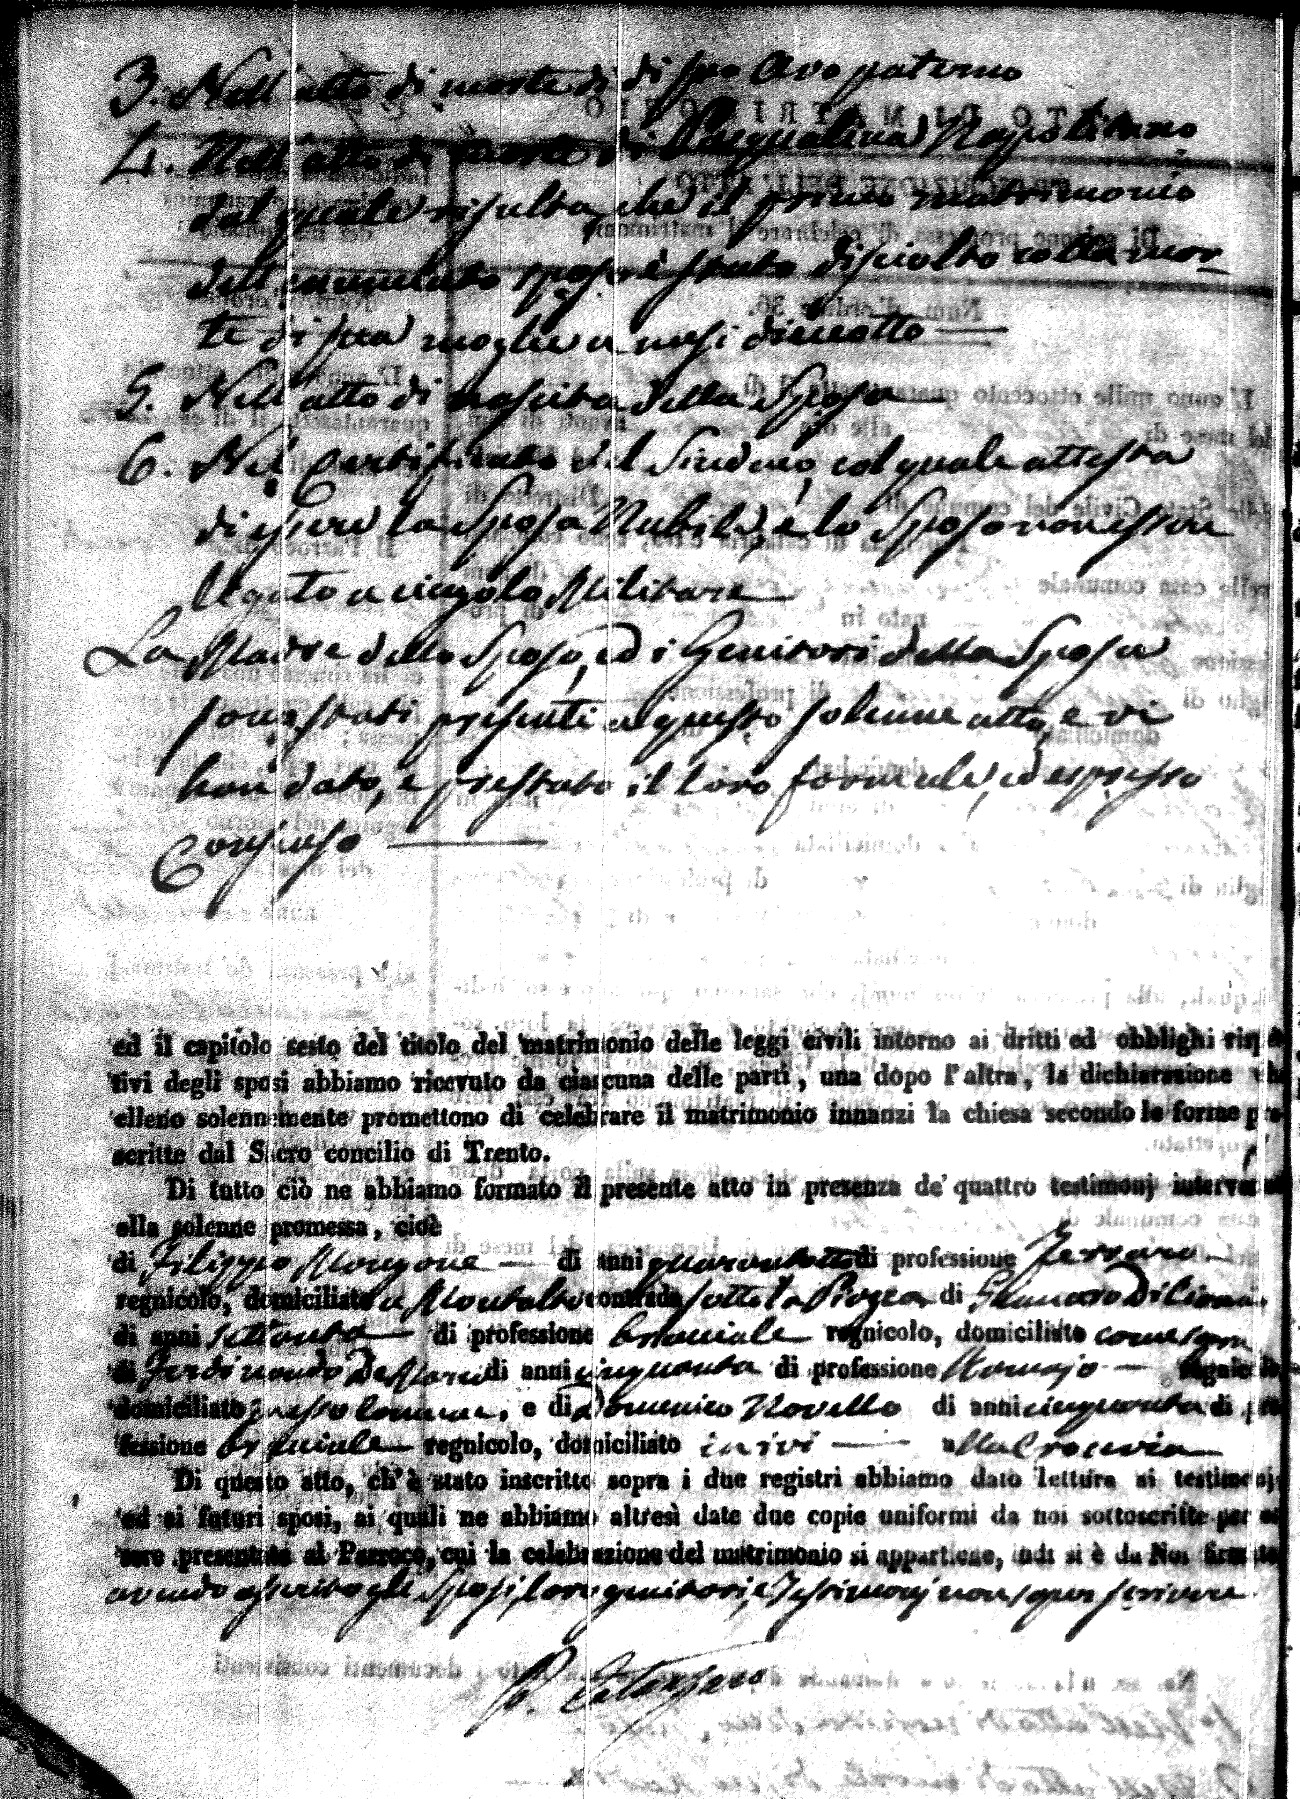 3. Nell'atto di morte di di suo Avo paterno
4. Nell'atto di morte di Pasqualina Napolitano
dal quale risulta, che il primo matrimonio
dell'enunciato sposo è stato disciolto colla mor-
te di sua moglie a mesi dieciotto
5. Nell'atto di nascita della Sposa
6. Nel Certificato del Sindaco, col quale attesta
di essere la Sposa Nubile, e lo Sposo non essere
legato a vincolo Militare
La Madre dello Sposo, ed i Genitori della Sposa
sono stati presenti a questo solenne atto, e vi
han dato, e prestato il loro formale, ed espresso
Consenso
ed il capitolo sesto del titolo del matrimonio delle leggi civili intorno ai dritti ed obblighi rispet-
tivi degli sposi abbiamo ricevuto da ciascuna delle parti, una dopo l'altra, la dichiarazione che
elleno solennemente promettono di celebrare il matrimonio innanzi la chiesa secondo le forme pre-
scritte dal Sacro concilio di Trento.
Di tutto ciò ne abbiamo formato il presente atto in presenza de' quattro testimonj intervenuti
alla solenne promessa, cioè
di Filippo Morgone di anni quarantotto di professione Ferraro
regnicolo, domiciliato a Montalto contrada sotto la Piazza di Gennaro
di anni settanta di professione bracciale regnicolo, domiciliato come sopra
di Ferdinando di anni cinquanta di professione regnicolo
domiciliato presso Comune, e di Domenico Novello di anni cinquanta di pro-
fessione bracciale regnicolo, domiciliato in ivi
Di questo atto, ch'è stato inscritto sopra i due registri abbiamo dato lettura ai testimonj
ed ai futuri sposi, ai quali ne abbiamo altresì date due copie uniformi da noi sottoscritte per es-
sere presentate al Parroco, cui la celebrazione del matrimonio si appartiene, indi si è da Noi firmato
avendo asserito gli Sposi, loro genitori, e Testimonj non saper scrivere